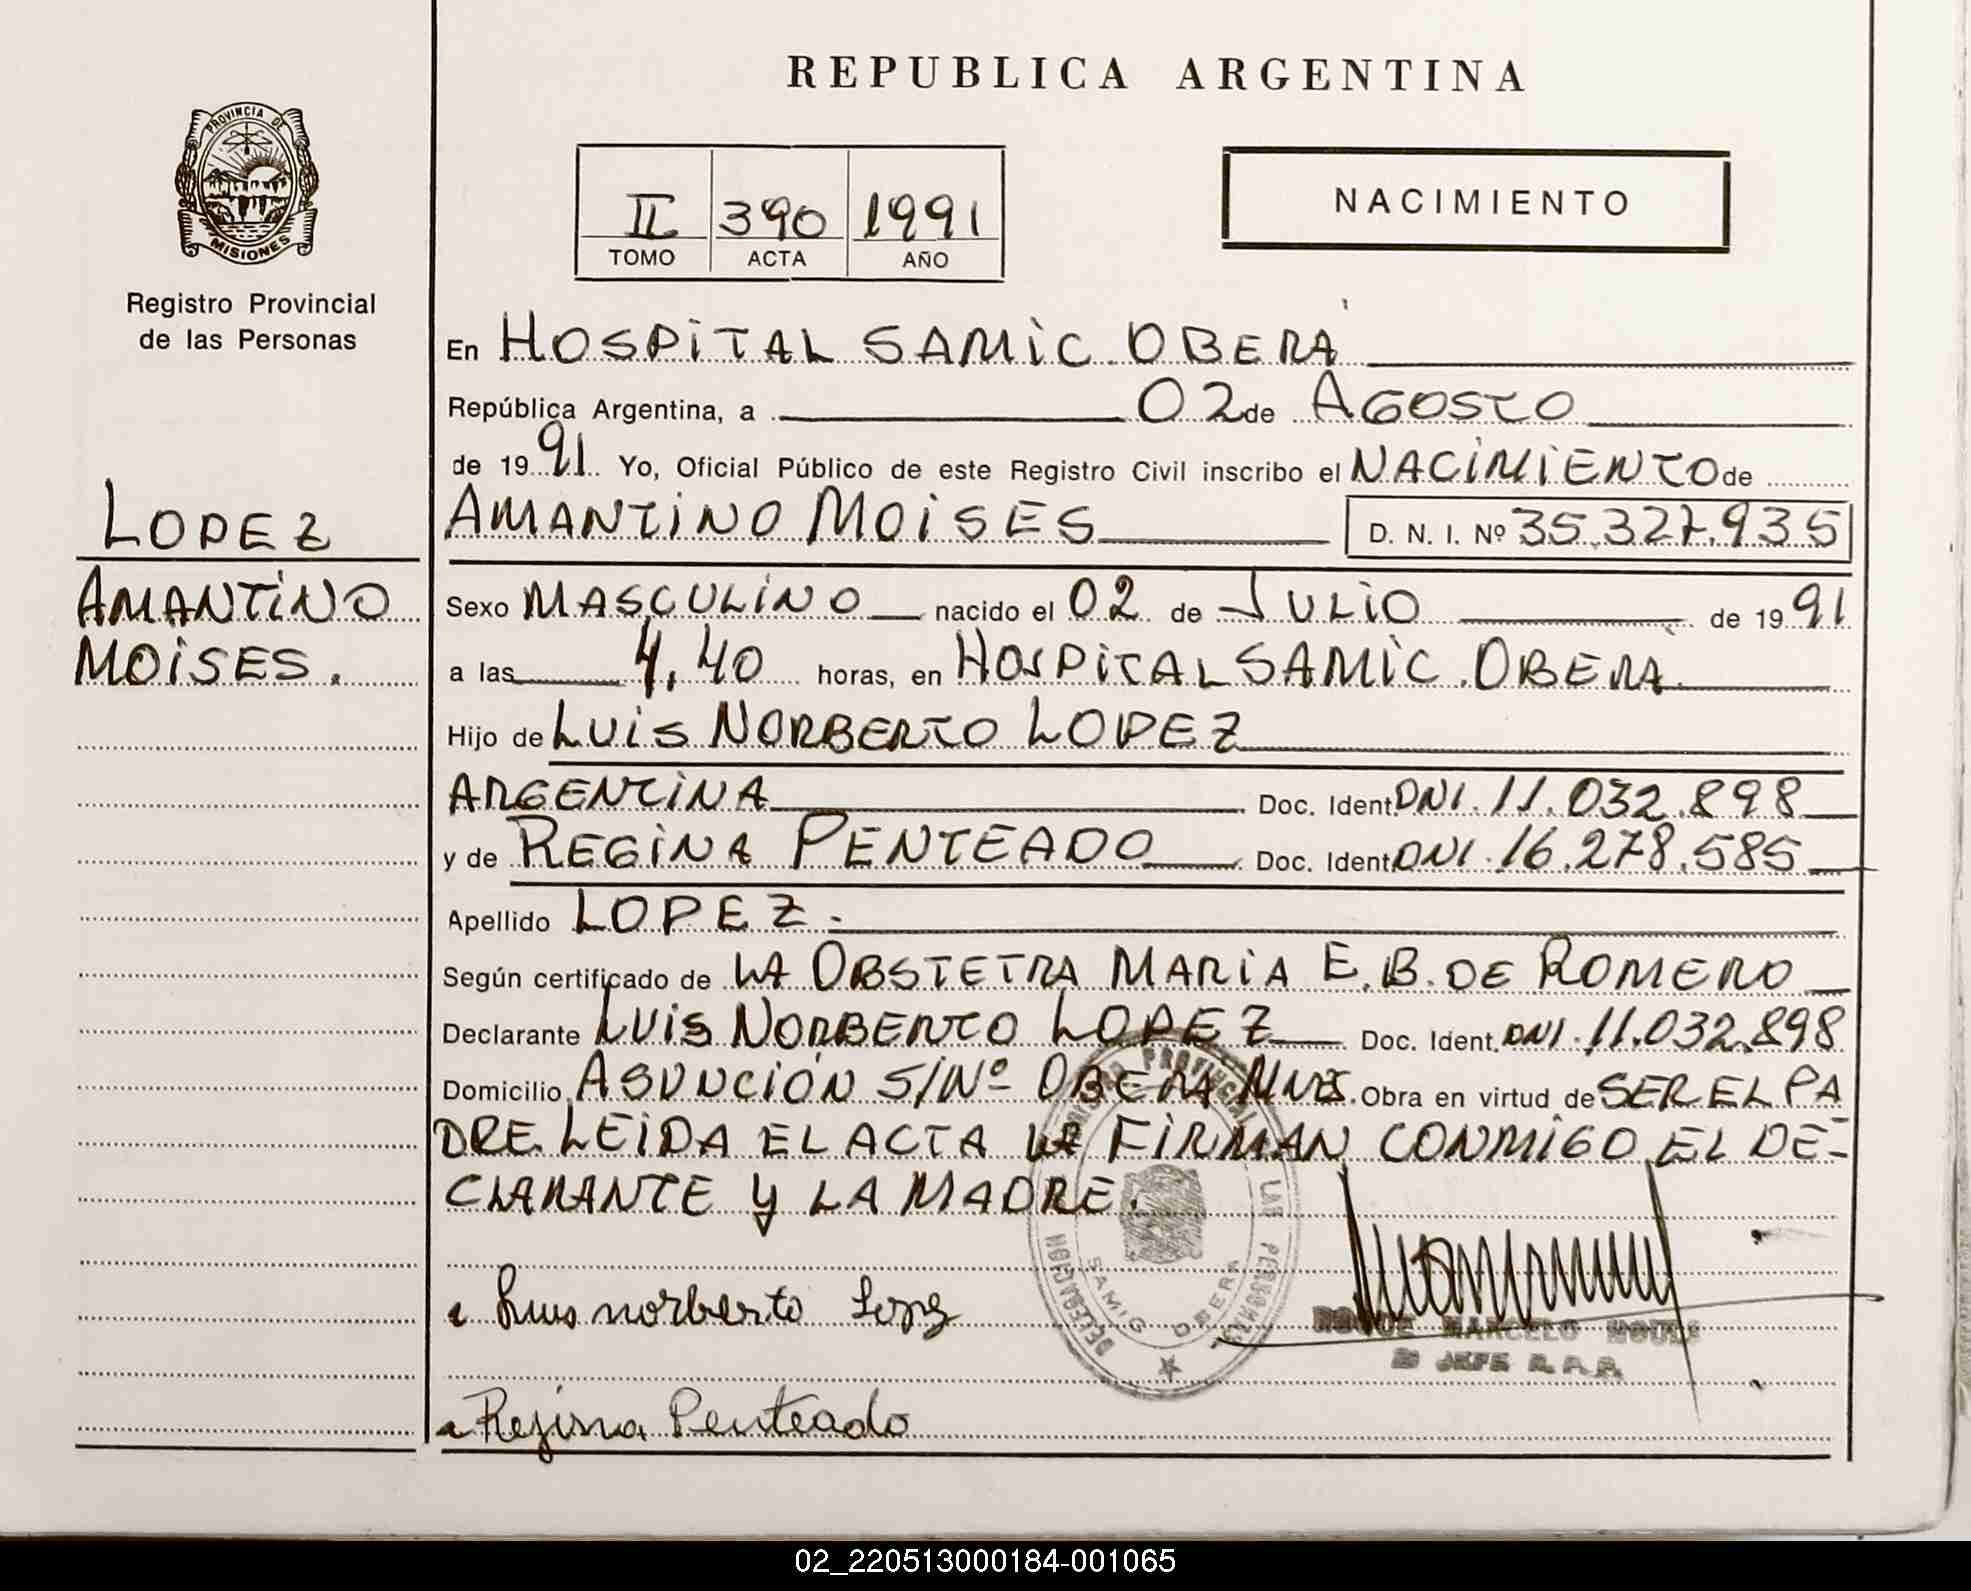 REPUBLICA ARGENTINA
PROVINCIA DE
MISIONES
Registro Provincial
de las Personas
II 390 1991
TOMO ACTA AÑO
NACIMIENTO
LOPEZ
AMANTINO
MOISES.
En HOSPITAL SAMIC OBERÁ
República Argentina, a 02 de AGOSTO
de 1991 Yo, Oficial Público de este Registro Civil inscribo el NACIMIENTO de
AMANTINO MOISES D. N. I. Nº 35.327.935
Sexo MASCULINO nacido el 02 de JULIO de 1991
a las 4,40 horas, en HOSPITAL SAMIC OBERA
Hijo de LUIS NORBERTO LOPEZ
ARGENTINA Doc. Ident. DNI. 11.032.898
y de REGINA PENTEADO Doc. Ident. DNI. 16.278.585
Apellido LOPEZ.
Según certificado de LA OBSTETRA MARIA E.B. DE ROMERO
Declarante LUIS NORBERTO LOPEZ Doc. Ident. DNI. 11.032.898
Domicilio ASUNCIÓN S/Nº OBERA MNES. Obra en virtud de SER EL PA
DRE. LEIDA EL ACTA LA FIRMAN CONMIGO EL DE-
CLARANTE Y LA MADRE.
Luis norberto Lopez
Rejina Penteado
PROVINCIAL
LAS PERSONAS
DELEGACION
SAMIC OBERA
MARCELO
JEFE R.P.P.
02_220513000184-001065